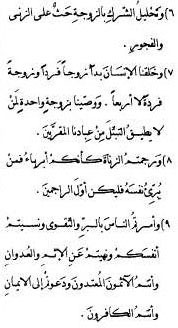 ٦) وَتَحْلِيلُ الشِّرْكِ بِالزَّوْجَةِ حَثٌّ عَلَى الزِّنَى
وَالْفُجُورِ.
٧) وَخَلَقْنَا الْإِنْسَانَ بَدْأً زَوْجاً فَرْداً وَزَوْجَةً
فَرْدَةً لَا أَرْبَعاً. وَوَصَّيْنَا بِزَوْجَةٍ وَاحِدَةٍ لِمَنْ
لَا يُطِيقُ التَّبَتُّلَ مِنْ عِبَادِنَا الْمُقَرَّبِينَ.
٨) وَرَجَمْتُمُ الزُّنَاةَ كَأَنَّكُمْ أَبْرِيَاءُ فَمَنْ
يُبَرِّئُ نَفْسَهُ فَلْيَكُنْ أَوَّلَ الرَّاجِمِينَ.
٩) وَأَمَرْتُمُ النَّاسَ بِالْبِرِّ وَالتَّقْوَى وَنَسِيتُمْ
أَنْفُسَكُمْ وَنَهَيْتُمْ عَنِ الْإِثْمِ وَالْعُدْوَانِ
وَأَنْتُمُ الْآثِمُونَ الْمُعْتَدُونَ وَدَعَوْتُمْ إِلَى الْإِيمَانِ
وَأَنْتُمُ الْكَافِرُونَ.